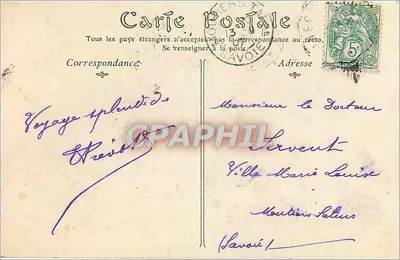 Carte Postale
Tous les pays étrangers n'acceptent pas la correspondance au recto.
Se renseigner à la poste.
Correspondance
Adresse
SAVOIE
5
Voyage splendide
Monsieur le Docteur
Servent
Villa Marie Louise
Moutiers Salins
(Savoie)
PIASHPIL